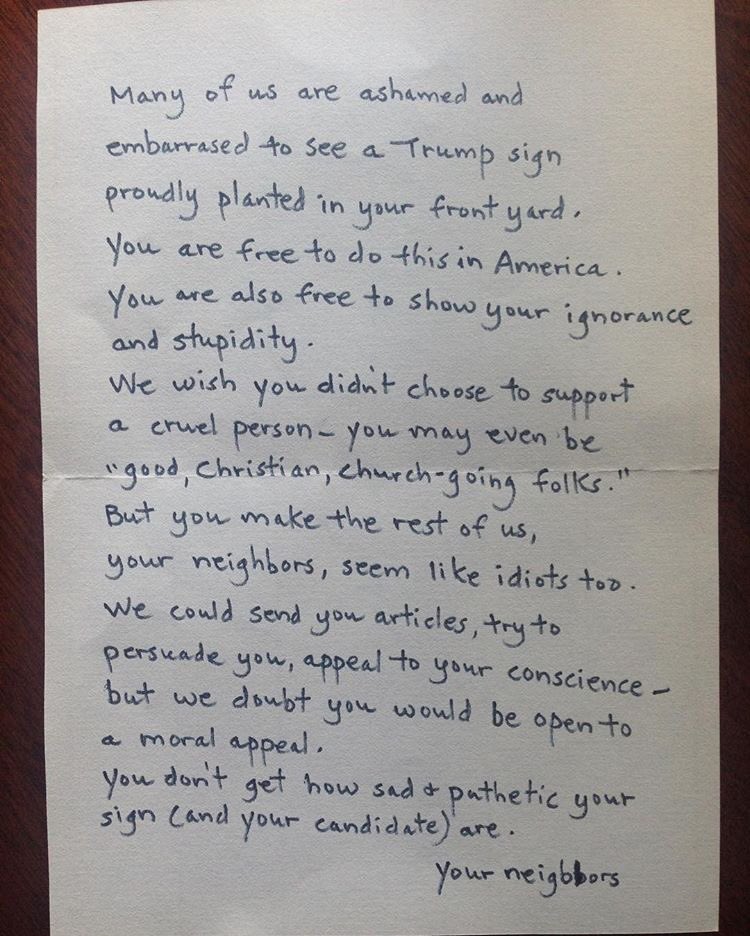 Many of us are ashamed and
embarrased to see a Trump sign
proudly planted in your front yard.
You are free to do this in America.
You are also free to show your ignorance
and stupidity.
We wish you didn't choose to support
a cruel person - you may even be
"good, Christian, church-going folks."
But you make the rest of us,
your neighbors, seem like idiots too.
We could send you articles, try to
persuade you, appeal to your conscience -
but we doubt you would be open to
a moral appeal.
You don't get how sad & pathetic your
sign (and your candidate) are.
Your neigbbors